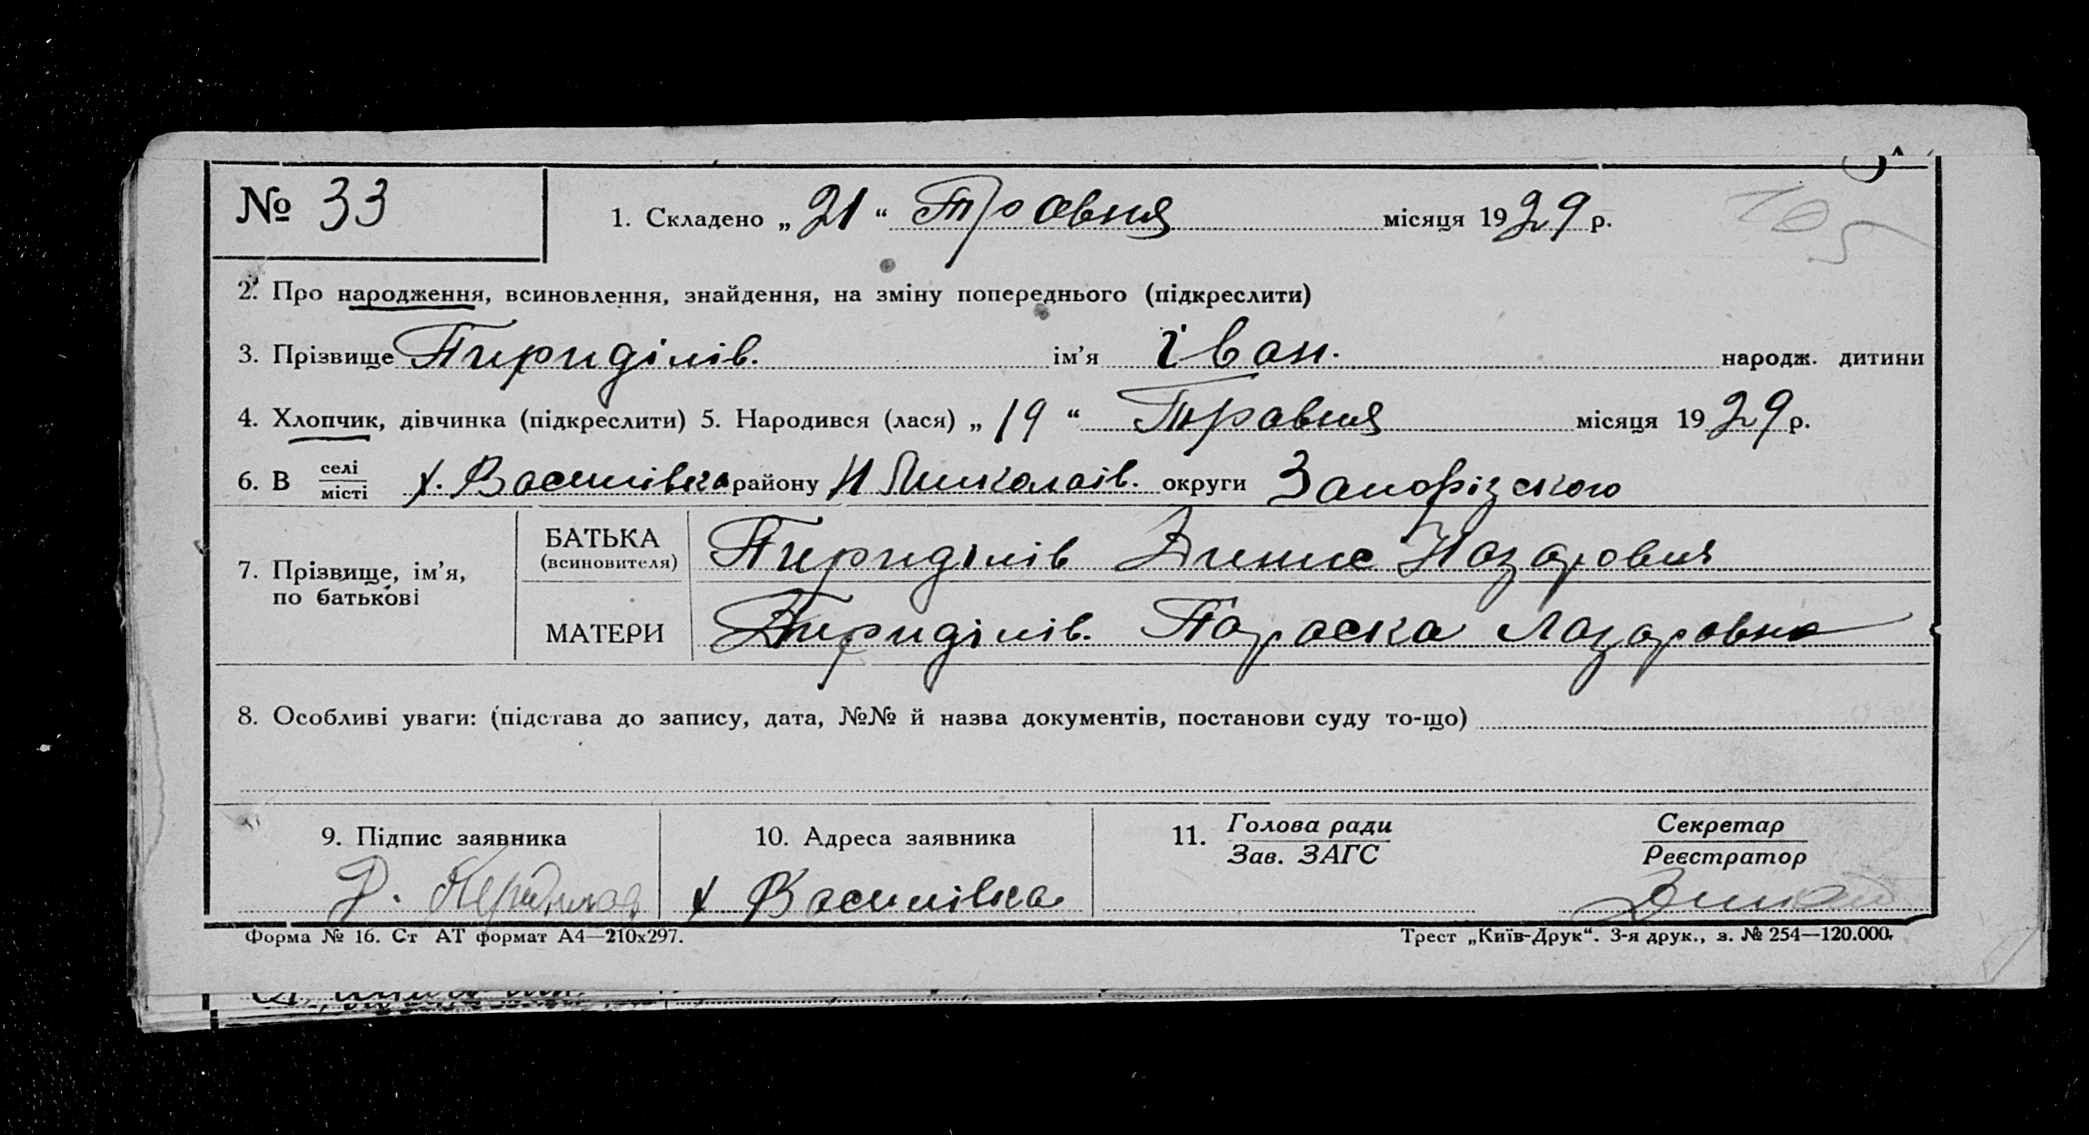 № 33
1. Складено „21“ Травня місяця 1929 р.
165
2. Про народження, всиновлення, знайдення, на зміну попереднього (підкреслити)
3. Прізвище Пириділів. ім’я Іван. народж. дитини
4. Хлопчик, дівчинка (підкреслити) 5. Народився (лася) „19“ Травня місяця 1929 р.
6. В селі/місті х. Василівка району Н Миколаів. округи Запорізского
7. Прізвище, ім’я, по батькові
БАТЬКА (всиновителя) Пириділів Динис Назаровия
МАТЕРИ Пириділів. Параска Лазаровна
8. Особливі уваги: (підстава до запису, дата, №№ й назва документів, постанови суду то-що)
9. Підпис заявника
10. Адреса заявника
11. Голова ради / Зав. ЗАГС
Секретар / Реєстратор
Д.
х Василівка
Форма № 16. Ст АТ формат А4—210х297.
Трест „Київ-Друк“. 3-я друк., з. № 254—120.000.